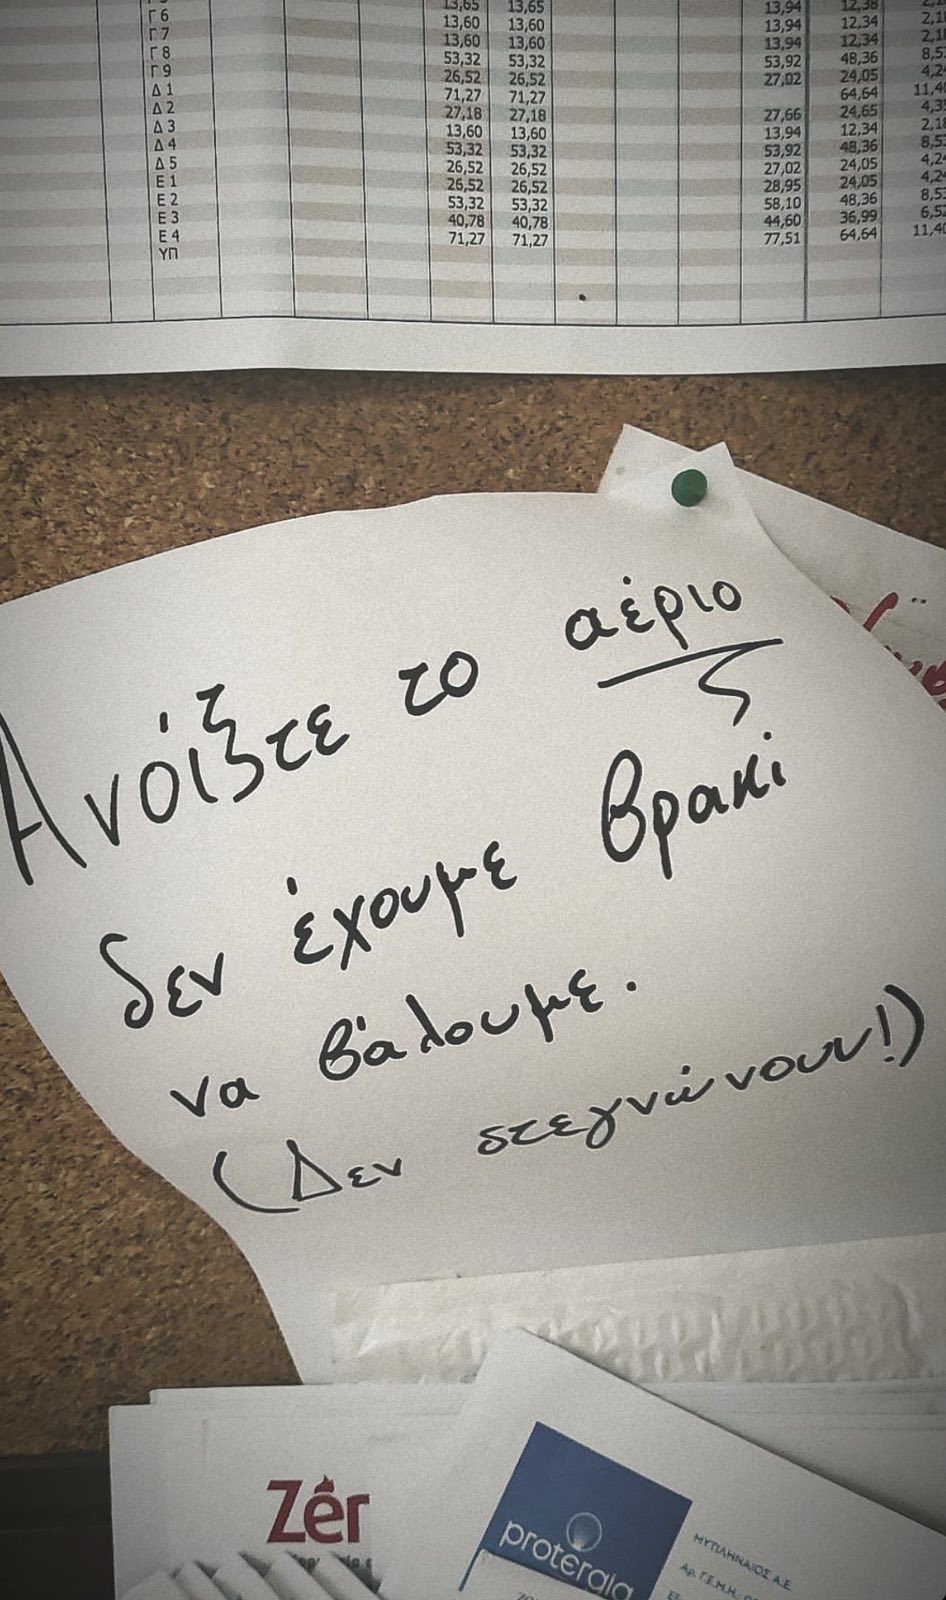 13,65 13,65 13,94 12,38
Γ 6 13,60 13,60 13,94 12,34
Γ 7 13,60 13,60 13,94 12,34
Γ 8 53,32 53,32 53,92 48,36
Γ 9 26,52 26,52 27,02 24,05
Δ 1 71,27 71,27 64,64 11,40
Δ 2 27,18 27,18 27,66 24,65
Δ 3 13,60 13,60 13,94 12,34
Δ 4 53,32 53,32 53,92 48,36
Δ 5 26,52 26,52 27,02 24,05
Ε 1 26,52 26,52 28,95 24,05
Ε 2 53,32 53,32 58,10 48,36
Ε 3 40,78 40,78 44,60 36,99
Ε 4 71,27 71,27 77,51 64,64 11,40
ΥΠ
Ανοίξτε το αέριο
δεν έχουμε βρακί
να βάλουμε.
(Δεν στεγνώνουν!)
Zér
protergia
ΜΥΤΙΛΗΝΑΙΟΣ Α.Ε.
Αρ. Γ.Ε.Μ.Η.